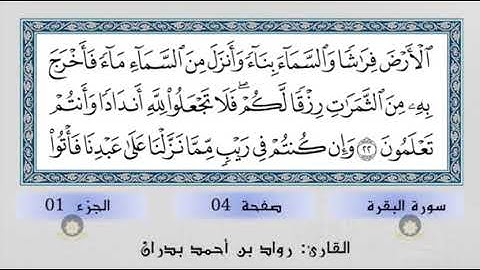 ٱلْأَرْضَ فِرَٰشًا وَٱلسَّمَآءَ بِنَآءً وَأَنزَلَ مِنَ ٱلسَّمَآءِ مَآءً فَأَخْرَجَ
بِهِۦ مِنَ ٱلثَّمَرَٰتِ رِزْقًا لَّكُمْ ۖ فَلَا تَجْعَلُوا۟ لِلَّهِ أَندَادًا وَأَنتُمْ
تَعْلَمُونَ ٢٢ وَإِن كُنتُمْ فِى رَيْبٍ مِّمَّا نَزَّلْنَا عَلَىٰ عَبْدِنَا فَأْتُوا۟
سورة البقرة صفحة 04 الجزء 01
القارئ: رواد بن أحمد بدران